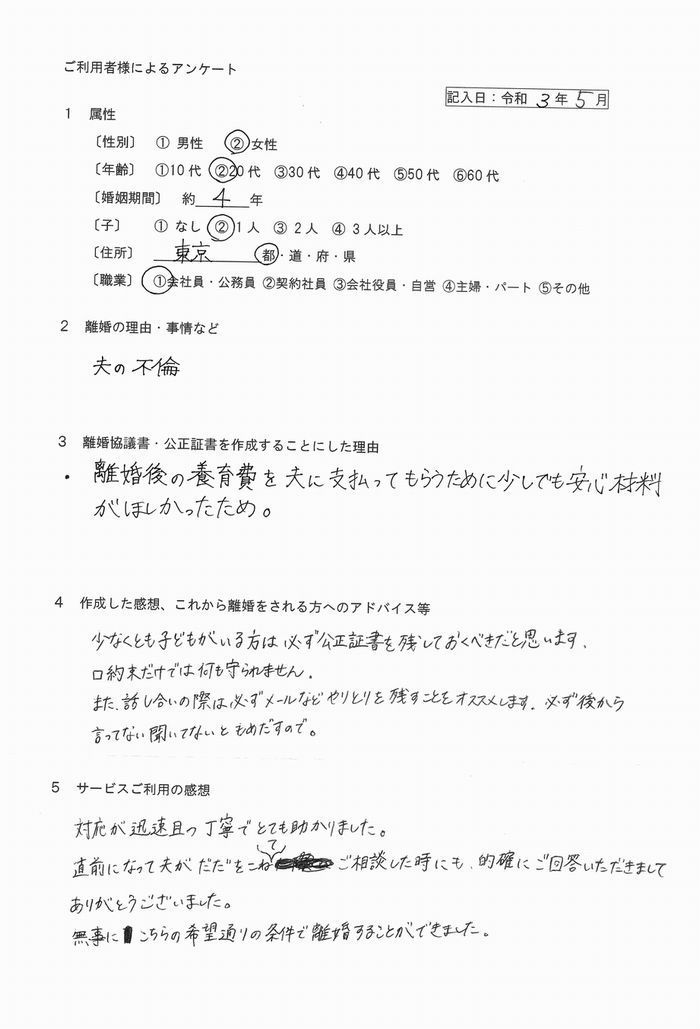 ご利用者様によるアンケート
記入日：令和 3 年 5 月
1 属性
〔性別〕 ① 男性 ② 女性
〔年齢〕 ①10代 ②20代 ③30代 ④40代 ⑤50代 ⑥60代
〔婚姻期間〕 約 4 年
〔子〕 ① なし ② 1人 ③ 2人 ④ 3人以上
〔住所〕 東京 都・道・府・県
〔職業〕 ①会社員・公務員 ②契約社員 ③会社役員・自営 ④主婦・パート ⑤その他
2 離婚の理由・事情など
夫の不倫
3 離婚協議書・公正証書を作成することにした理由
・ 離婚後の養育費を夫に支払ってもらうために少しでも安心材料
がほしかったため。
4 作成した感想、これから離婚をされる方へのアドバイス等
少なくとも子どもがいる方は必ず公正証書を残しておくべきだと思います．
口約束だけでは何も守られません．
また、話し合いの際は必ずメールなどやりとりを残すことをオススメします．必ず後から
言ってない聞いてないともめだすので。
5 サービスご利用の感想
対応が迅速且つ丁寧でとても助かりました。
直前になって夫がだだをこねてご相談した時にも、的確にご回答いただきまして
ありがとうございました。
無事にこちらの希望通りの条件で離婚することができました。